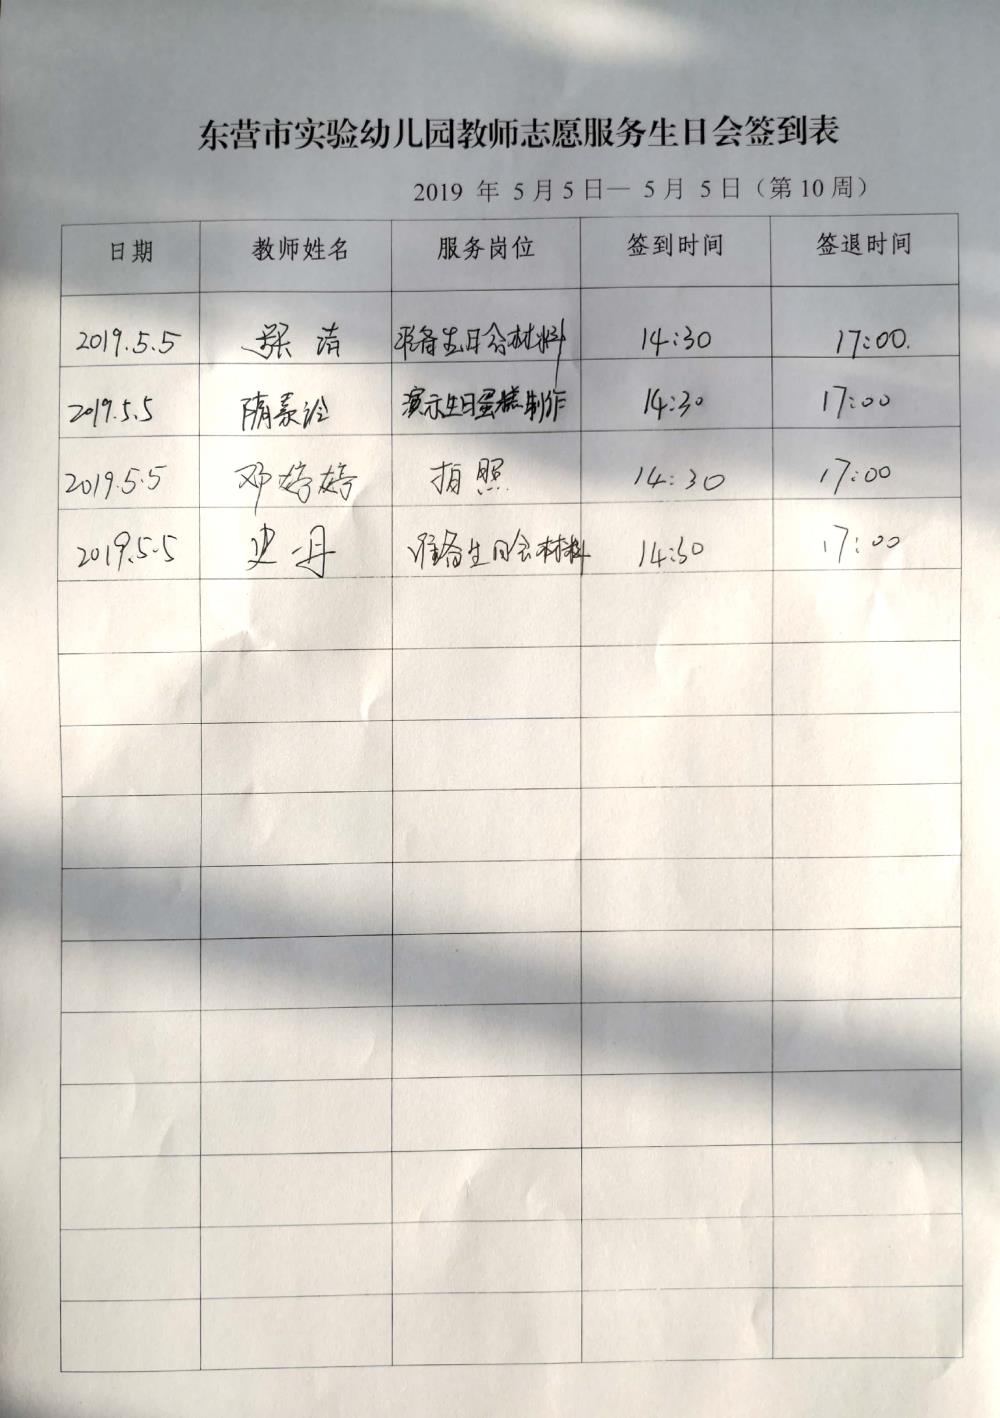 东营市实验幼儿园教师志愿服务生日会签到表
2019 年 5月5日— 5月 5日（第10周）
日期 教师姓名 服务岗位 签到时间 签退时间
2019.5.5 张清 准备生日会材料 14:30 17:00.
2019.5.5 隋泰 演示生日蛋糕制作 14:30 17:00
2019.5.5 邓婷婷 拍照 14:30 17:00
2019.5.5 史丹 准备生日会材料 14:30 17:00